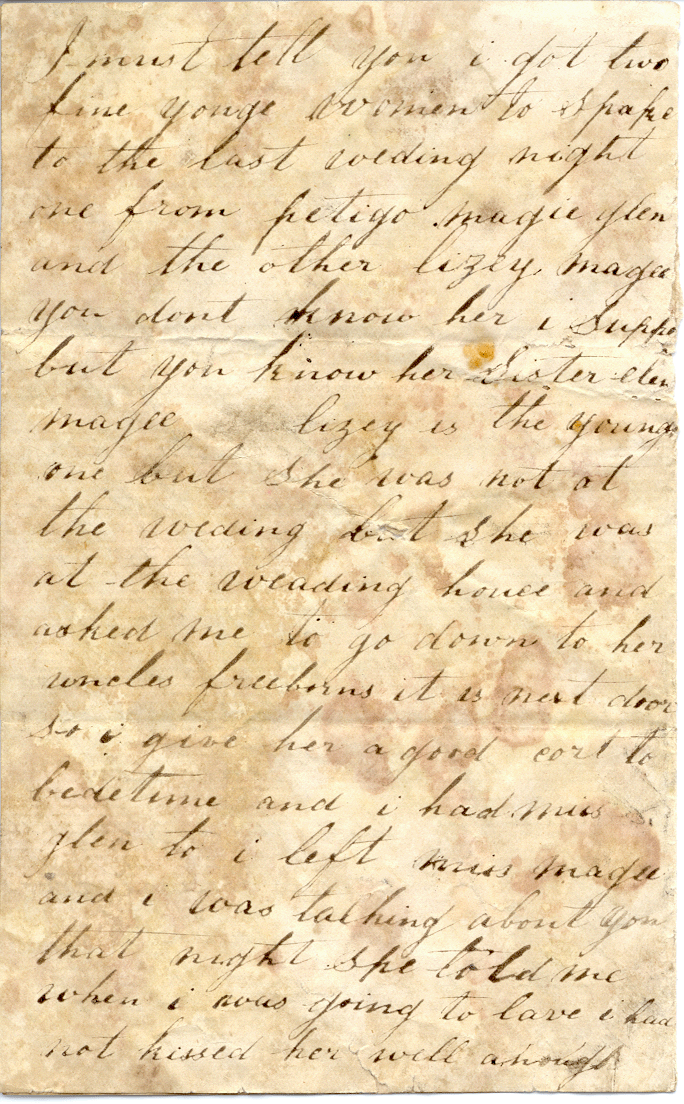 I must tell you i got two
fine yonge women to spake
to the last weding night
one from petigo magie glen
and the other lizey magee
you dont know her i suppo
but you know her Sister elen
magee lizey is the young
one but she was not at
the weding but she was
at the weading house and
asked me to go down to her
uncles freeborns it is next door
so i give her a good cort to
bedetime and i had miss
glen to i left miss magee
and i was talking about you
that night she told me
when i was going to lave i had
not kissed her well anough